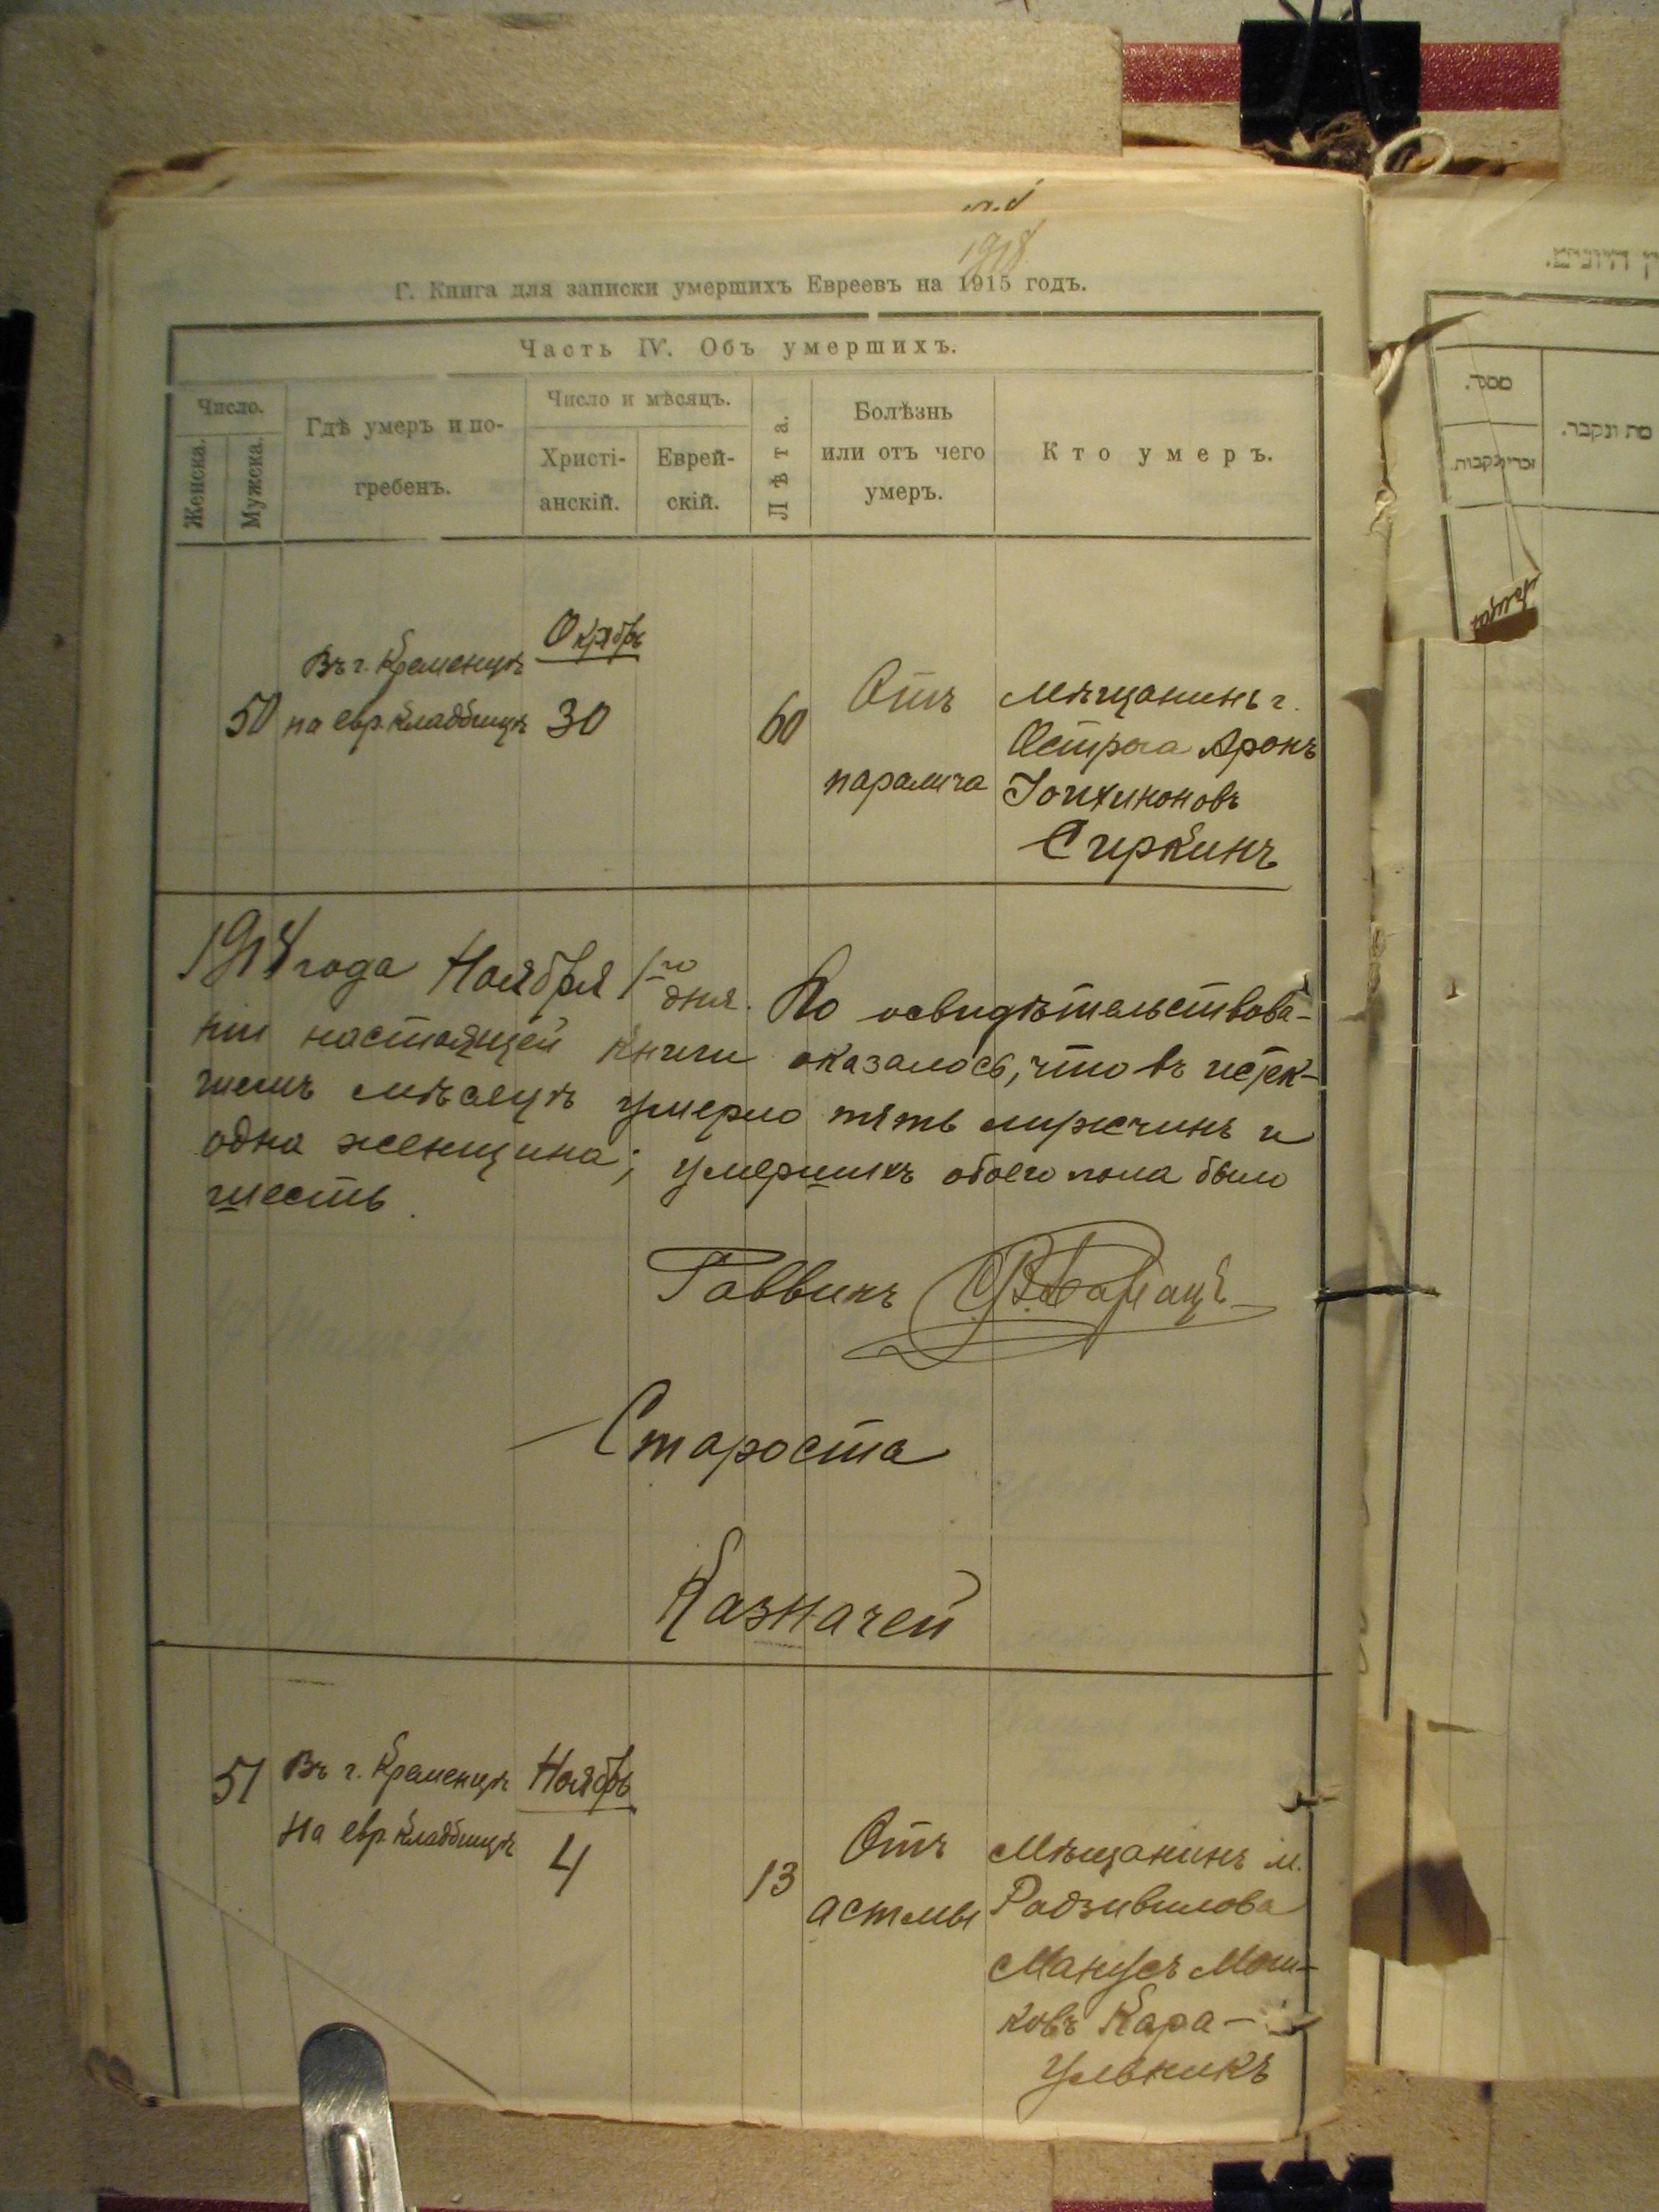 1918
Г. Книга для записки умершихъ Евреевъ на 1915 годъ.
Часть IV. Объ умершихъ.
Число.
Женска.
Мужска.
Гдѣ умеръ и по-
гребенъ.
Число и мѣсяцъ.
Христі-
анскій.
Еврей-
скій.
Лѣта.
Болѣзнь
или отъ чего
умеръ.
Кто умеръ.
50
Въ г. Кременцѣ
на евр. кладбищѣ
Октябрь
30
60
Отъ
паралича
Мѣщанинъ г.
Острога Аронъ
Іоихиконовъ
Сиркинъ
1918 года Ноября 1го дня. По освидѣтельствова-
нiи настоящей книги оказалось, что въ истек-
шемъ мѣсяцѣ умерло пять мужчинъ и
одна женщина; умершихъ обоего пола было
шесть.
Раввинъ
Староста
Казначей
51
Въ г. Кременцѣ
на евр. кладбищѣ
Ноябрь
4
13
Отъ
астмы
Мѣщанинъ м.
Радзивилова
Манусъ Мош-
ковъ Кара-
ульникъ
מספר.
זכרים
נקבות.
מת ונקבר.